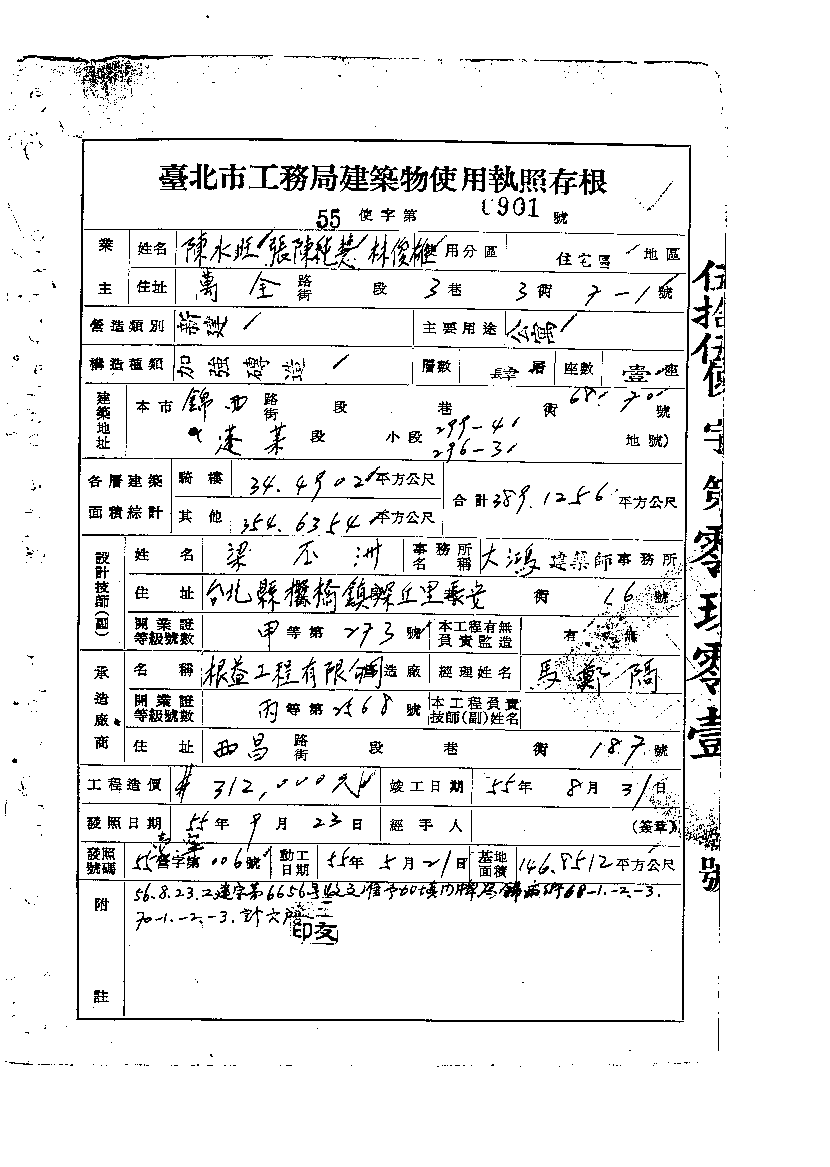 臺北市工務局建築物使用執照存根
55 使字第 0901 號
業主 姓名 陳水旺 張陳純慧 林俊雄 用分區 住宅區 地區
住址 萬全 路街 段 3 巷 3 衖 7-1 號
營造類別 新建 主要用途 公寓
構造種類 加強磚造 層數 層 座數 壹 座
建築地址 本市 錦西 路街 段 巷 衖 68. 70. 號
蓬萊 段 小段 299-4 296-3 地號)
各層建築面積綜計 騎樓 34.4902 平方公尺 合計 389.1256 平方公尺
其他 354.6354 平方公尺
設計技師(副) 姓名 梁丕洲 事務所名稱 大鴻建築師事務所
住址 台北縣板橋鎮 里長安 衖 16 號
開業證等級號數 甲等第 273 號 本工程有無負責監造 有 無
承造廠商 名稱 根益工程有限公司 造廠 經理姓名 馬鄭隔
開業證等級號數 丙等第 2568 號 本工程負責技師(副)姓名
住址 西昌 路街 段 巷 衖 187 號
工程造價 312,000元 竣工日期 55年 8月 31日
發照日期 55年 9月 23日 經手人 (簽章)
發照號碼 55 營字第 006 號 動工日期 55年 5月 21日 基地面積 146.8512 平方公尺
附註 56.8.23.工建字第6656號 門牌為錦西街68-1.-2.-3.
70-1.-2.-3.計六戶
伍拾伍使字第零玖零壹號